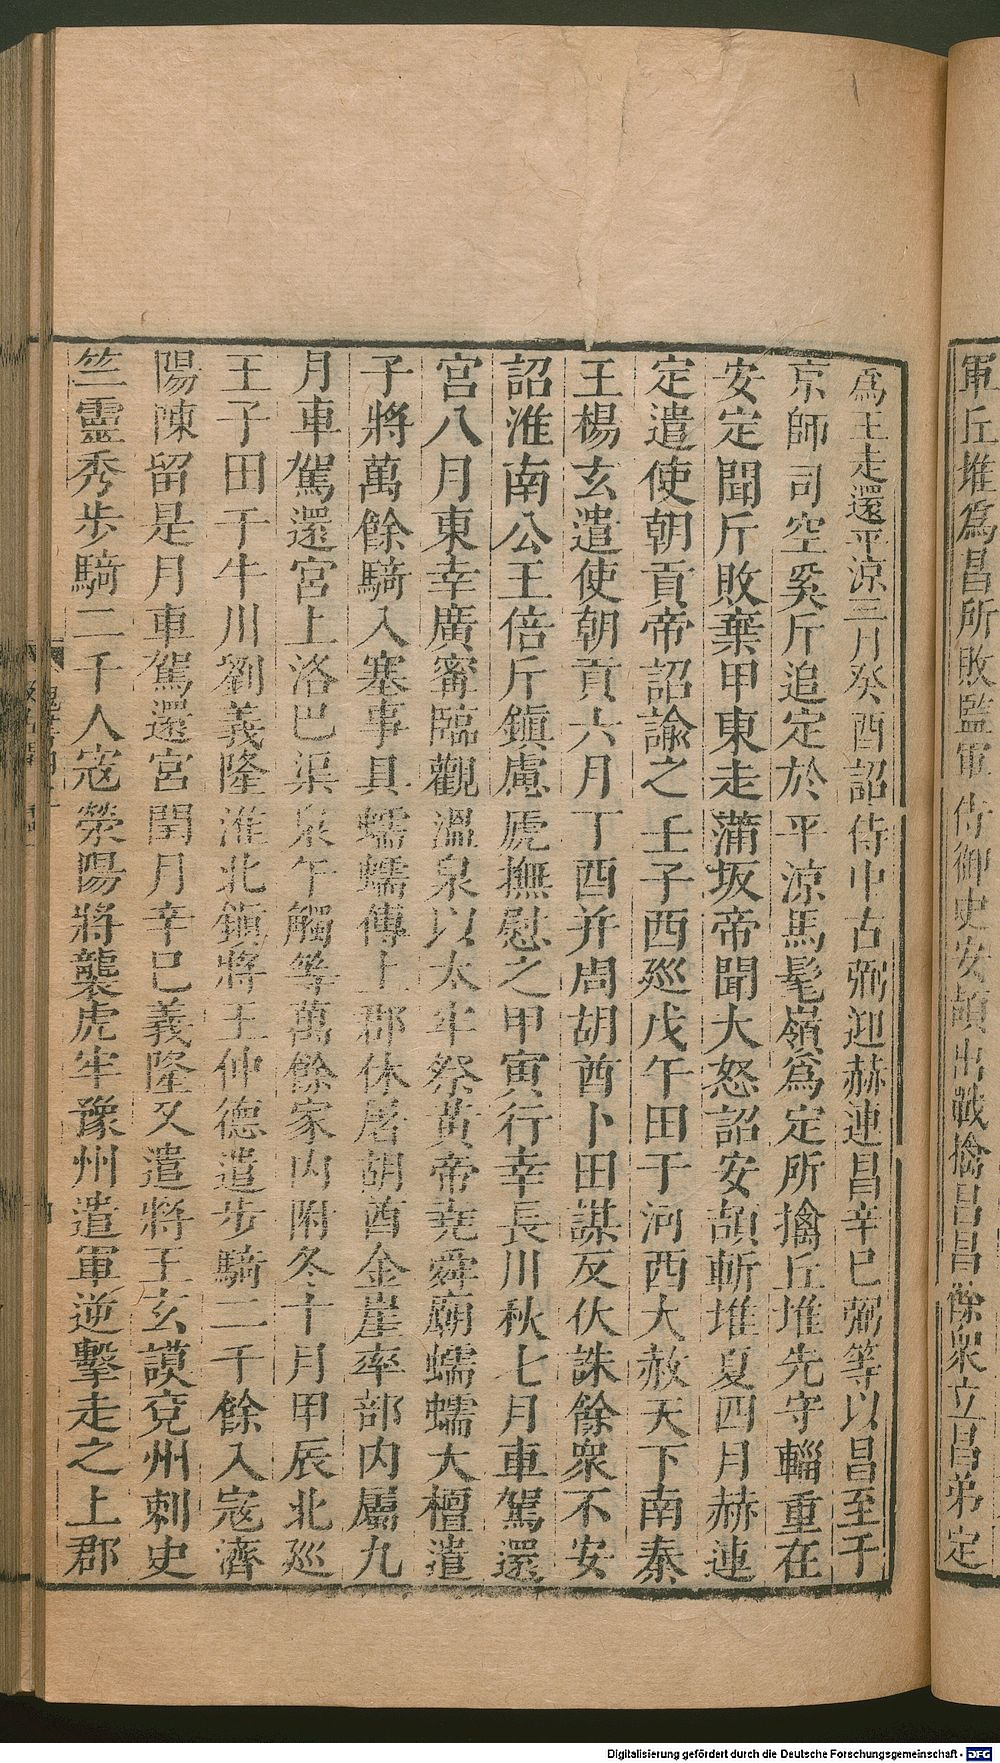 軍丘堆爲昌所敗監軍侍御史安頡出戰擒昌昌餘衆立昌弟定
爲王走還平涼三月癸酉詔侍中古弼迎赫連昌辛巳弼等以昌至于
京師司空奚斤追定於平涼馬髦嶺爲定所擒丘堆先守輜重在
安定聞斤敗棄甲東走蒲坂帝聞大怒詔安頡斬堆夏四月赫連
定遣使朝貢帝詔諭之壬子西廵戊午田于河西大赦天下南秦
王楊玄遣使朝貢六月丁酉并周胡酋卜田謀反伏誅餘衆不安
詔淮南公王倍斤鎮慮虒撫慰之甲寅行幸長川秋七月車駕還
宮八月東幸廣寗臨觀溫泉以太牢祭黃帝堯舜廟蠕蠕大檀遣
子將萬餘騎入塞事具蠕蠕傳十郡休屠胡酋金崖率部内屬九
月車駕還宮上洛巴渠泉午觸等萬餘家内附冬十月甲辰北廵
壬子田于牛川劉義隆淮北鎮將王仲德遣步騎二千餘入寇濟
陽陳留是月車駕還宮閏月辛巳義隆又遣將王玄謨兗州刺史
竺靈秀步騎二千人寇滎陽將襲虎牢豫州遣軍逆擊走之上郡
Digitalisierung gefördert durch die Deutsche Forschungsgemeinschaft - DFG